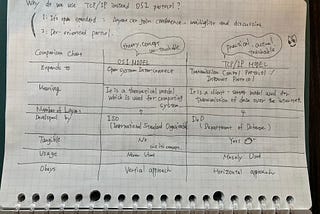 Why do we use TCP/IP instead OSI protocol?
1: It's open standard : Anyone can join conference, mailinglist and discussion
2:
theory, concept
un-touchable
practical, actual
touchable
Comparison Chart
OSI MODEL
TCP/IP MODEL
Expands to
Open System Interconnect
Transmission Control Protocol /
Internet Protocol
Meaning
It is a theoretical model
which is used for computing
system.
It is a client - server model used for
transmission of data over the internet.
Number of Layers
4
Developed by
ISO
(International Standard Organization)
DoD
(Department of Defense.)
Tangible
No
Yes
Usage
Never Used
Mostly Used
Obeys
Vertical approach
Horizontal approach